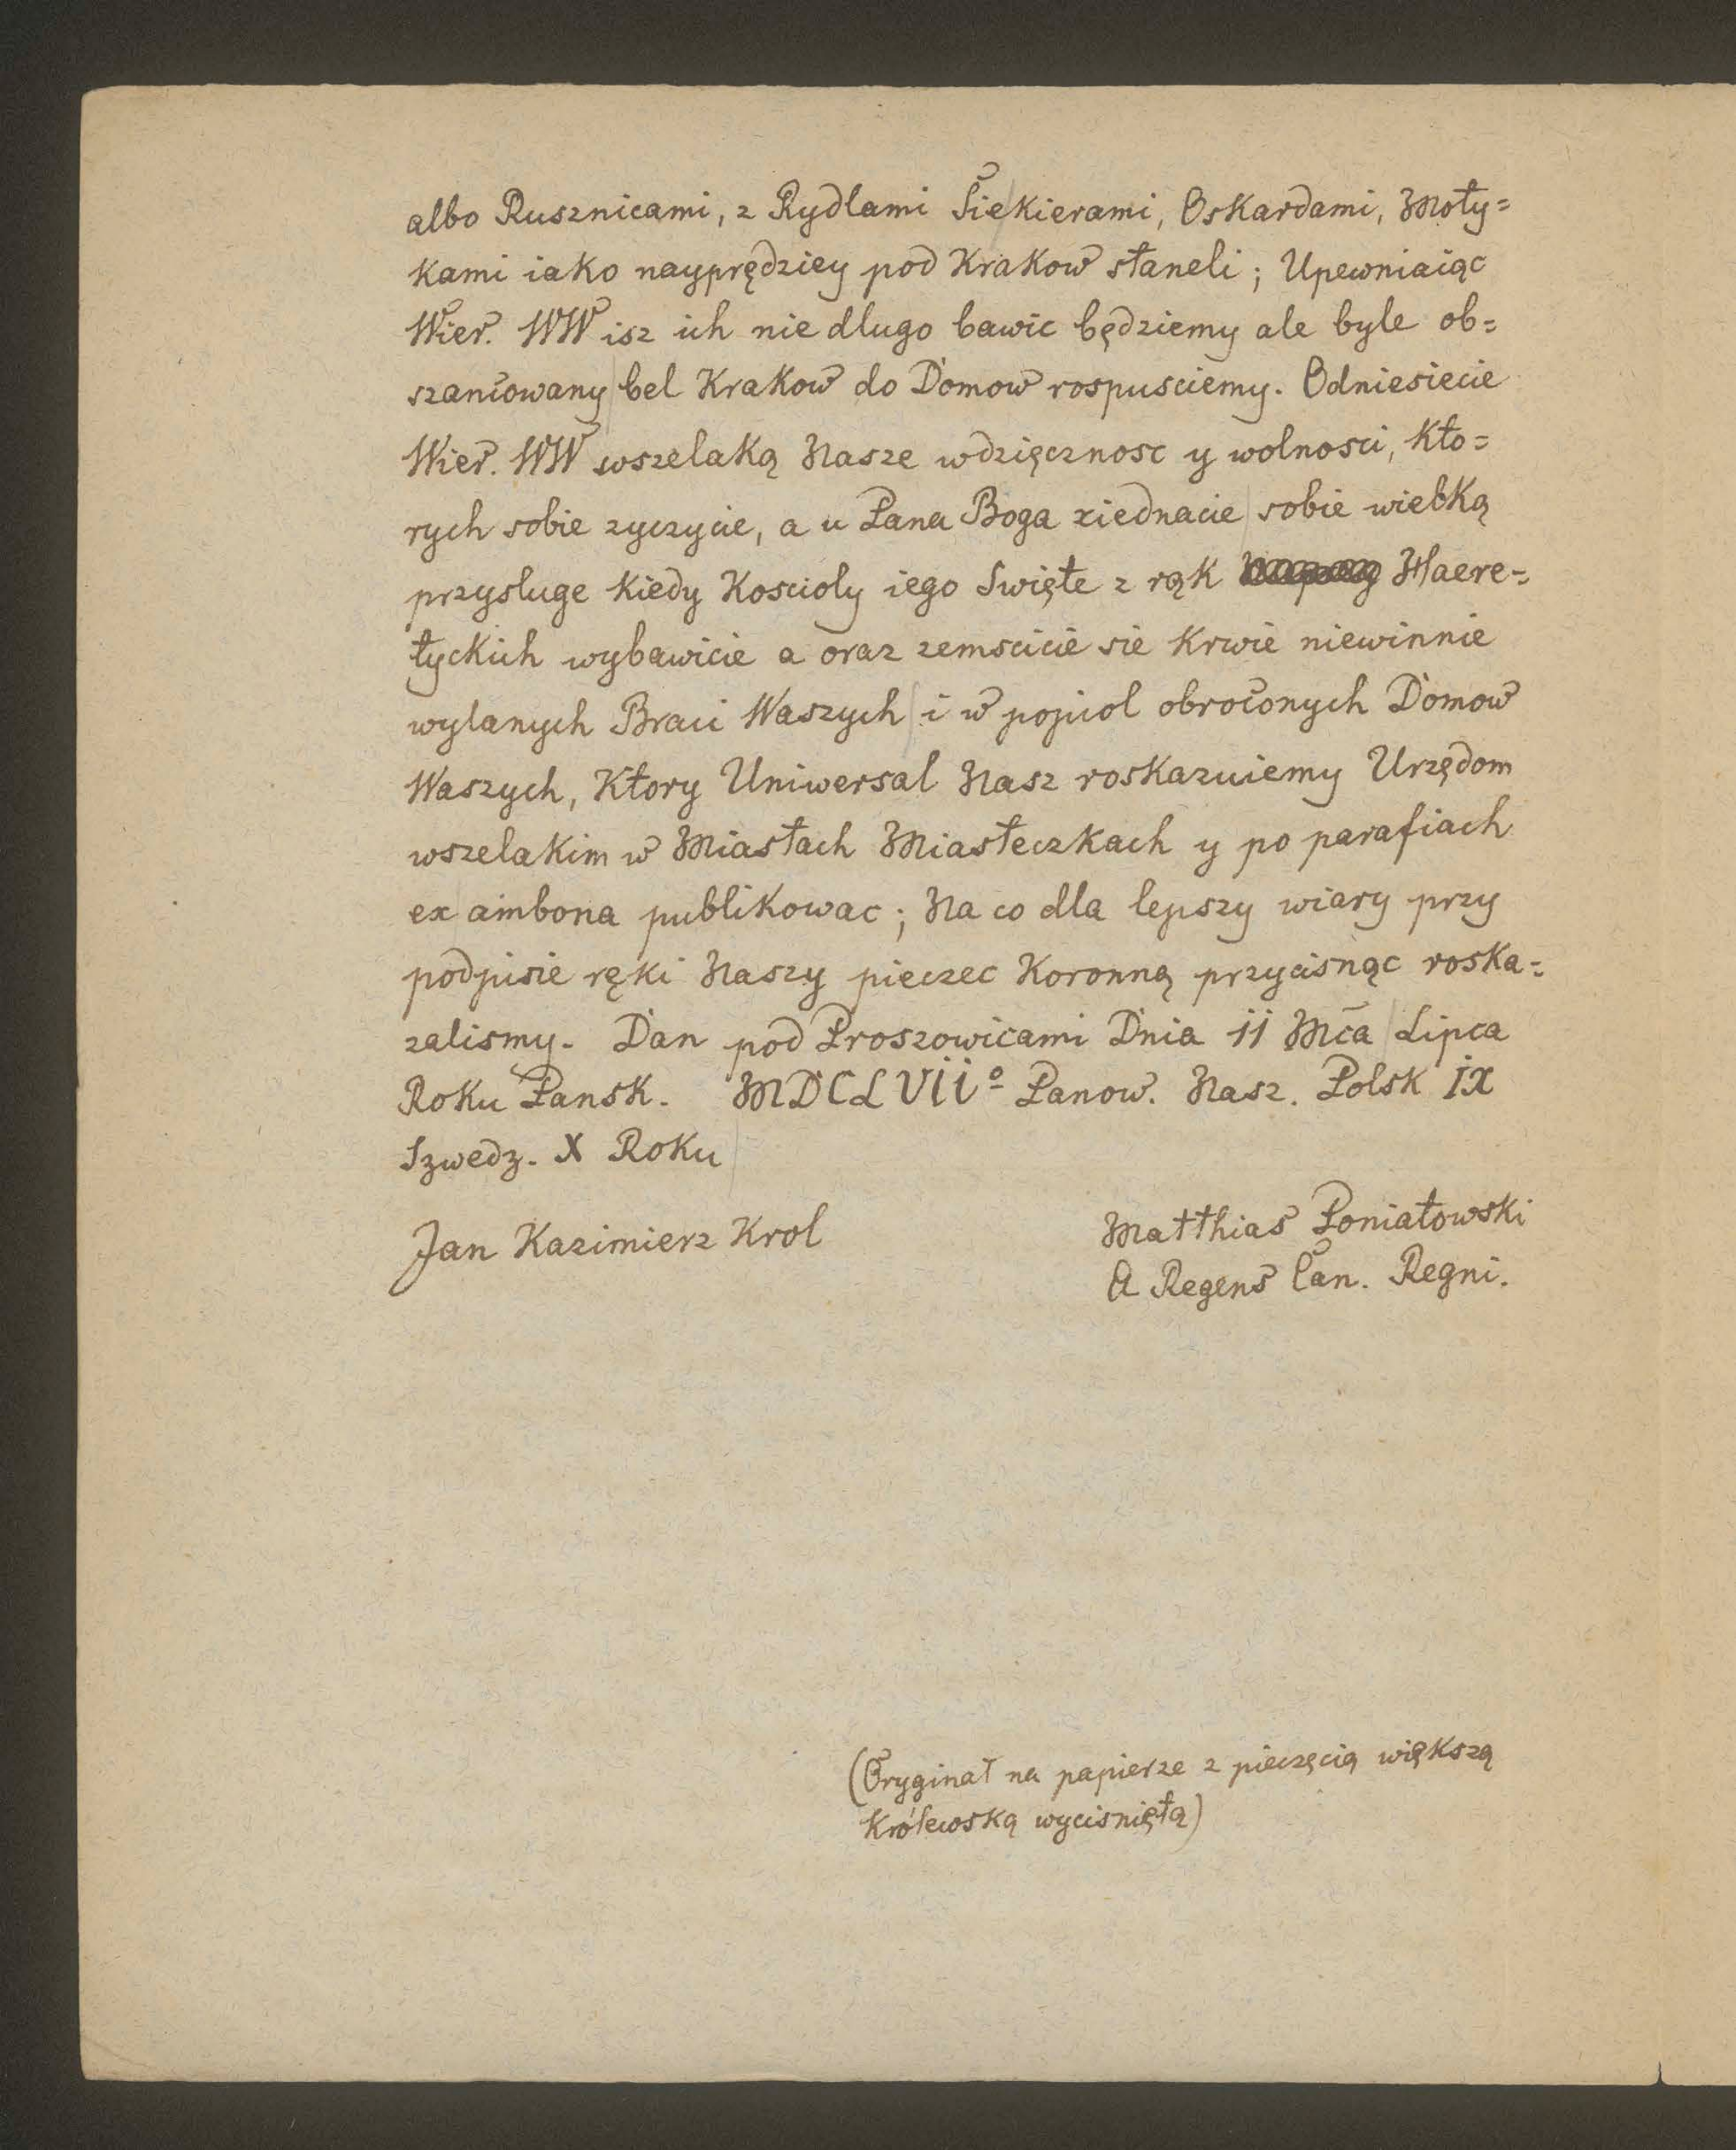 albo Rusznicami, z Rydlami Siekierami, Oskardami, Moty=
kami iako nayprędziey pod Krakow staneli; Upewniaiąc
Wier. WW isz ich nie dlugo bawic będziemy ale byle ob=
szancowany bel Krakow do Domow rospusciemy. Odniesiecie
Wier. WW wszelaką Nasze wdzięcznosc y wolnosci, kto=
rych sobie zyczycie, a u Pana Boga ziednacie sobie wielką
przysluge kiedy Koscioly iego Swięte z rąk Haere=
tyckich wybawicie a oraz zemscicie sie krwie niewinnie
wylanych Braci Waszych i w popiol obroconych Domow
Waszych, Ktory Uniwersal Nasz roskazuiemy Urzędom
wszelakim w Miastach Miasteczkach y po parafiach
ex ambona publikowac; Na co dla lepszy wiary przy
podpisie ręki Naszy pieczec Koronną przycisnąc roska=
zalismy. Dan pod Proszowicami Dnia 11 Mca Lipca
Roku Pansk. MDCLVII° Panow. Nasz. Polsk IX
Szwedz. X Roku
Jan Kazimierz Krol
Matthias Poniatowski
A Regens Can. Regni.
(Oryginał na papierze z pieczęcią większą
Królewską wyciśnięta)